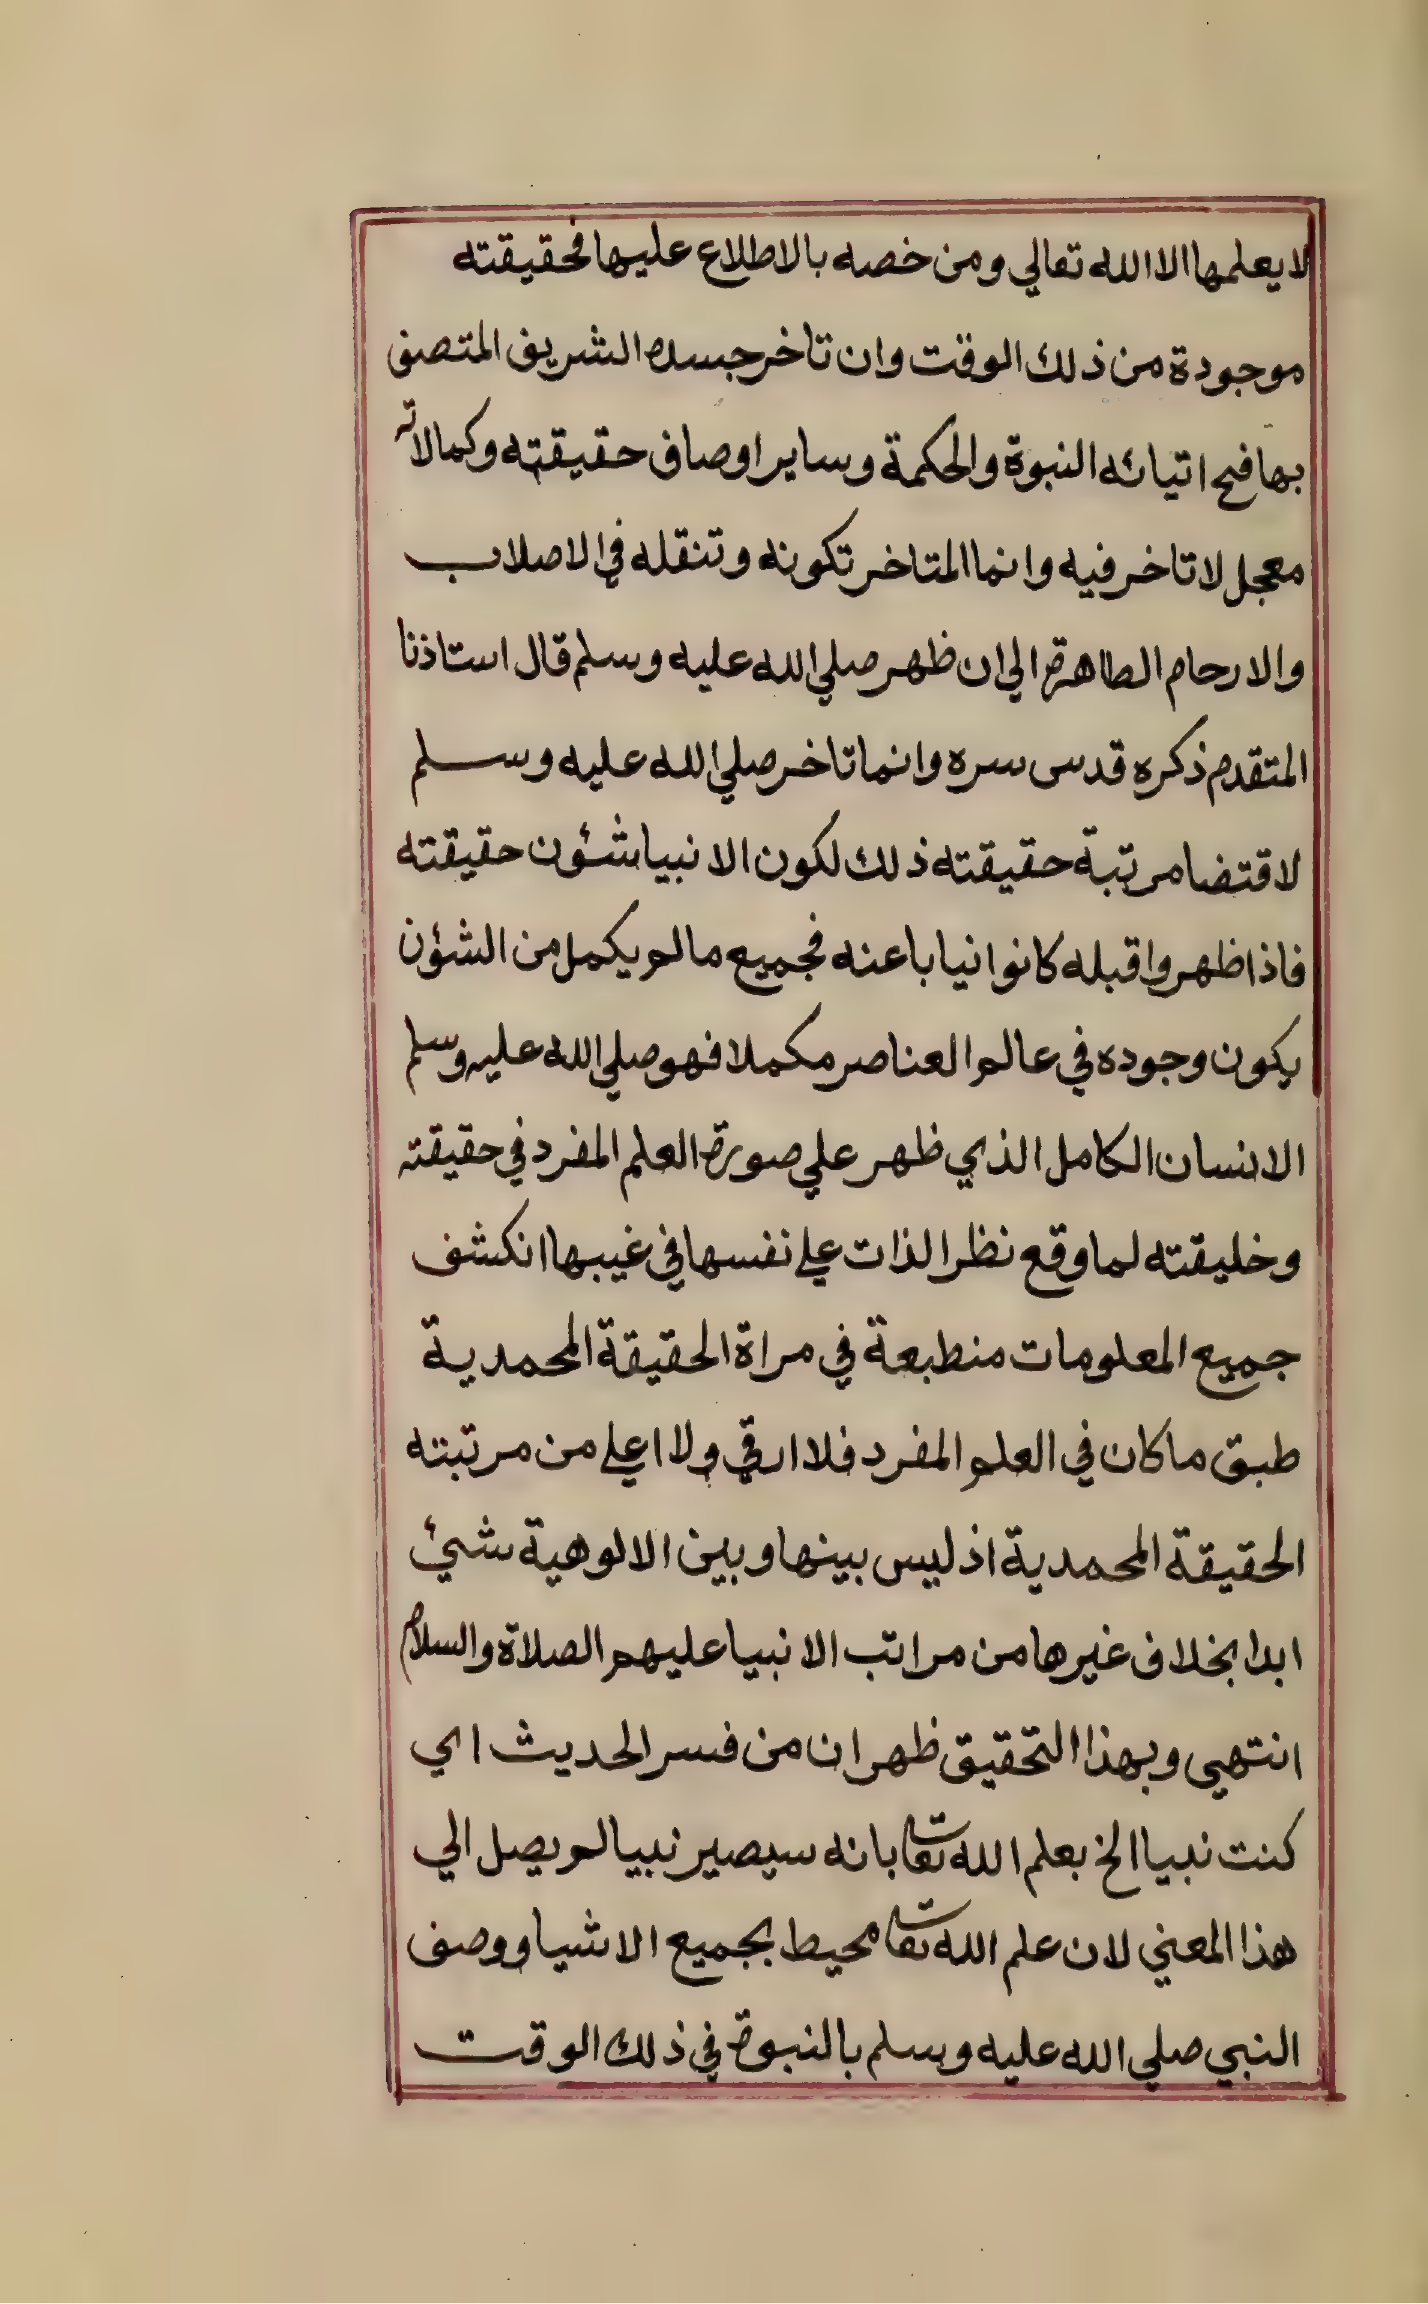 لا يعلمها الا الله تعالي ومن خصه بالاطلاع عليها فحقيقته
موجودة من ذلك الوقت وان تاخر جسده الشريف المتصف
بها فصح اتيانه النبوة والحكمة وساير اوصاف حقيقته وكمالاته
معجل لا تاخر فيه وانما المتاخر تكونه وتنقله في الاصلاب
والارحام الطاهرة الي ان ظهر صلي الله عليه وسلم قال استاذنا
المتقدم ذكره قدس سره وانما تاخر صلي الله عليه وسلم
لاقتضا مرتبة حقيقته ذلك لكون الانبيا شئون حقيقته
فاذا ظهروا قبله كانوا نيابا عنه فجميع ما لم يكمل من الشؤن
يكون وجوده في عالم العناصر مكملا فهو صلي الله عليه وسلم
الانسان الكامل الذي ظهر علي صورة العلم المفرد في حقيقته
وخليقته لما وقع نظر الذات علي نفسها في غيبها انكشف
جميع المعلومات منطبعة في مراة الحقيقة المحمدية
طبق ما كان في العلم المفرد فلا ارقي ولا اعلي من مرتبته
الحقيقة المحمدية اذ ليس بينها وبين الالوهية شئ
ابدا بخلاف غيرها من مراتب الانبيا عليهم الصلاة والسلام
انتهي وبهذا التحقيق ظهر ان من فسر الحديث اي
كنت نبيا الخ بعلم الله تعا بانه سيصير نبيا لم يصل الي
هذا المعني لان علم الله تعا محيط بجميع الاشيا ووصف
النبي صلي الله عليه وسلم بالنبوة في ذلك الوقت